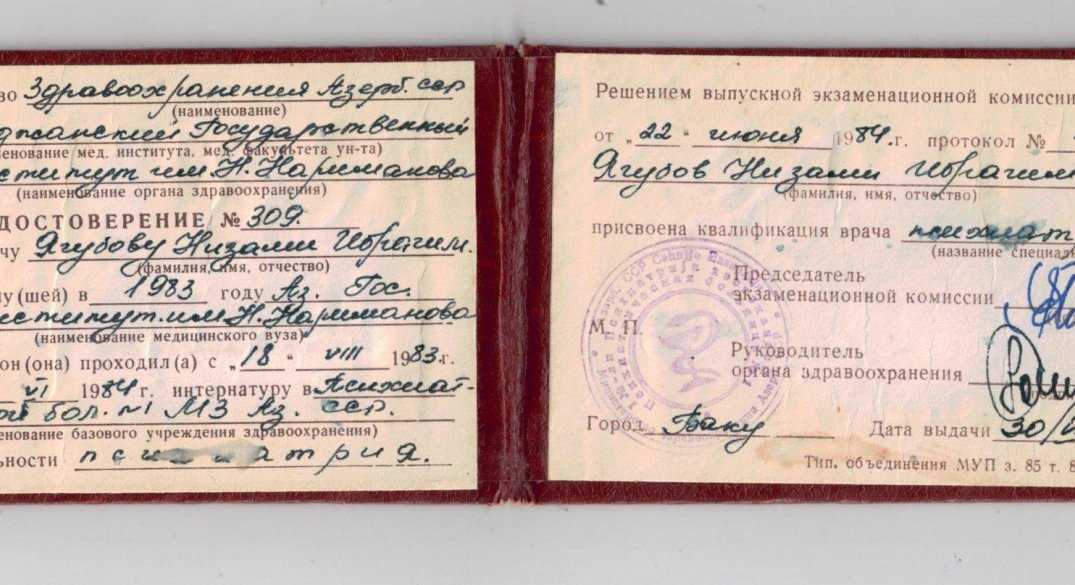 во Здравоохранения Азерб. сср
(наименование)
джанский Государственный
енование мед. института, мед. факультета ун-та)
ститут им. Н. Нариманова
(наименование органа здравоохранения)
ДОСТОВЕРЕНИЕ № 309.
чу Ягубову Низами Ибрагим.
(фамилия, имя, отчество)
у (шей) в 1983 году Аз. Гос.
ститут. им Н. Нариманова
(наименование медицинского вуза)
он (она) проходил(а) с „18 " VIII 1983 г.
VI 1984 г. интернатуру в Психиат-
ой бол. №1 МЗ Аз. сср.
енование базового учреждения здравоохранения)
ьности психиатрия.
Решением выпускной экзаменационной комиссии
от „22 " июня 1984 г. протокол №
Ягубов Низами Ибрагим
(фамилия, имя, отчество)
присвоена квалификация врача психиат
(название специаль
Председатель
экзаменационной комиссии
М. П.
Руководитель
органа здравоохранения
Город Баку Дата выдачи 30/V
Тип. объединения МУП з. 85 т. 8